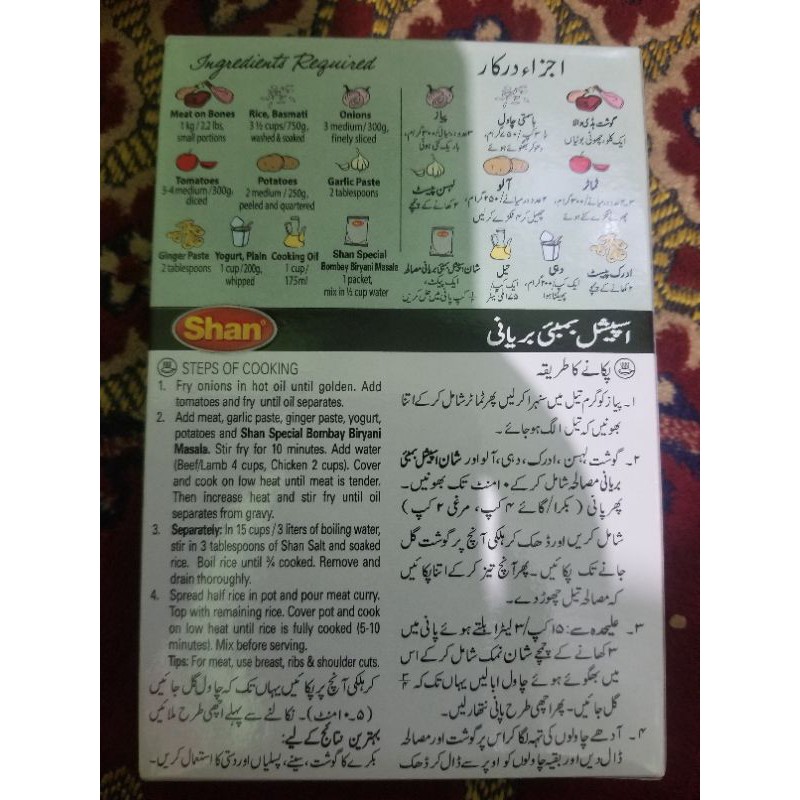 Ingredients Required
Meat on Bones
1 kg / 2.2 lbs,
small portions
Rice, Basmati
3 ½ cups/750g,
washed & soaked
Onions
3 medium/300g,
finely sliced
Tomatoes
3-4 medium/300g,
diced
Potatoes
2 medium / 250g,
peeled and quartered
Garlic Paste
2 tablespoons
Ginger Paste
2 tablespoons
Yogurt, Plain
1 cup/200g,
whipped
Cooking Oil
1 cup/
175ml
Shan Special
Bombay Biryani Masala
1 packet,
mix in ½ cup water
اجزاء درکار
گوشت ہڈی والا
ایک کلو، چھوٹی بوٹیاں
باسمتی چاول
پیاز
باریک کٹی ہوئی
ٹماٹر
آلو
لہسن پیسٹ
۲ کھانے کے چمچے
ادرک پیسٹ
۲ کھانے کے چمچے
دہی
ایک کپ/۲۰۰گرام،
پھینٹا ہوا
تیل
ایک کپ/
۱۷۵ملی لیٹر
شان اسپیشل بمبئی بریانی مصالحہ
ایک پیکٹ،
½ کپ پانی میں حل کریں
Shan
اسپیشل بمبئی بریانی
STEPS OF COOKING
1. Fry onions in hot oil until golden. Add
tomatoes and fry until oil separates.
2. Add meat, garlic paste, ginger paste, yogurt,
potatoes and Shan Special Bombay Biryani
Masala. Stir fry for 10 minutes. Add water
(Beef/Lamb 4 cups, Chicken 2 cups). Cover
and cook on low heat until meat is tender.
Then increase heat and stir fry until oil
separates from gravy.
3. Separately: In 15 cups / 3 liters of boiling water,
stir in 3 tablespoons of Shan Salt and soaked
rice. Boil rice until ¾ cooked. Remove and
drain thoroughly.
4. Spread half rice in pot and pour meat curry.
Top with remaining rice. Cover pot and cook
on low heat until rice is fully cooked (5-10
minutes). Mix before serving.
Tips: For meat, use breast, ribs & shoulder cuts.
پکانے کا طریقہ
۱۔ پیاز کو گرم تیل میں سنہرا کرلیں پھر ٹماٹر شامل کرکے اتنا
بھونیں کہ تیل الگ ہوجائے۔
۲۔ گوشت، لہسن، ادرک، دہی، آلو اور شان اسپیشل بمبئی
بریانی مصالحہ شامل کرکے ۱۰ منٹ تک بھونیں۔
پھر پانی (بکرا/گائے ۴ کپ، مرغی ۲ کپ)
شامل کریں اور ڈھک کر ہلکی آنچ پر گوشت گل
جانے تک پکائیں۔ پھر آنچ تیز کرکے اتنا پکائیں
کہ مصالحہ تیل چھوڑ دے۔
۳۔ علیحدہ سے: ۱۵ کپ/۳ لیٹر ابلتے ہوئے پانی میں
۳ کھانے کے چمچے شان نمک شامل کرکے اس
میں بھگوئے ہوئے چاول ابالیں یہاں تک کہ ¾
گل جائیں۔ پھر اچھی طرح پانی نتھار لیں۔
۴۔ آدھے چاولوں کی تہہ لگا کر اس پر گوشت اور مصالحہ
ڈال دیں اور بقیہ چاولوں کو اوپر سے ڈال کر ڈھک
کر ہلکی آنچ پر پکائیں یہاں تک کہ چاول گل جائیں
(۵۔۱۰ منٹ)۔ نکالنے سے پہلے اچھی طرح ملائیں
بہترین نتائج کے لیے:
بکرے کا گوشت، سینے، پسلیاں اور دستی کا استعمال کریں۔